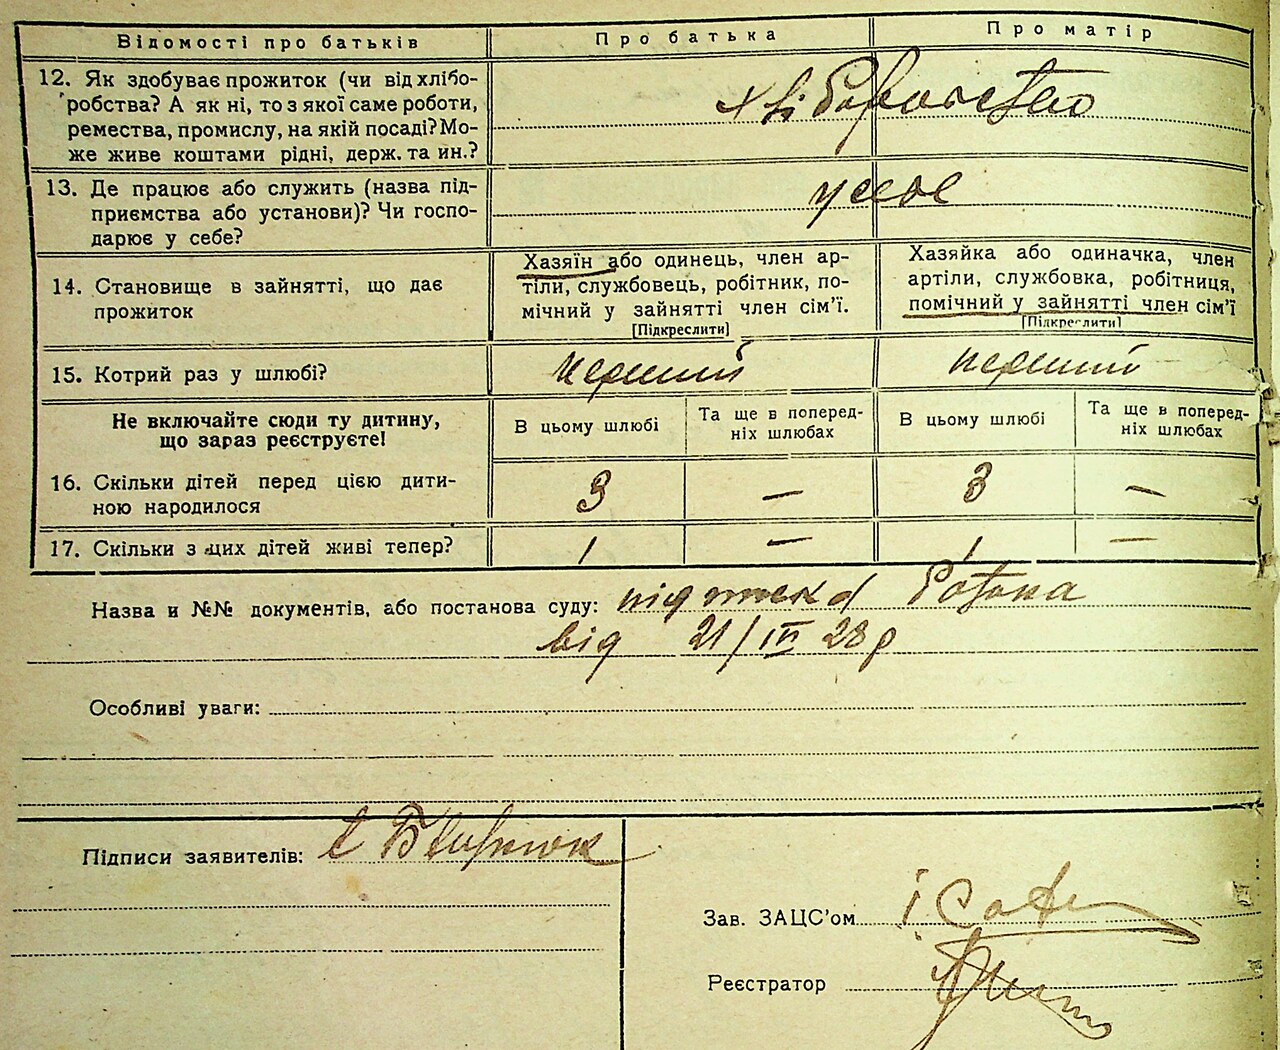 Відомості про батьків
Про батька
Про матір
12. Як здобуває прожиток (чи від хлібо-
робства? А як ні, то з якої саме роботи,
ремества, промислу, на якій посаді? Мо-
же живе коштами рідні, держ. та ин.?
хліборобство
13. Де працює або служить (назва під-
приємства або установи)? Чи госпо-
дарює у себе?
у себе
14. Становище в зайнятті, що дає
прожиток
Хазяїн або одинець, член ар-
тіли, службовець, робітник, по-
мічний у зайнятті член сім'ї.
[Підкреслити]
Хазяйка або одиначка, член
артіли, службовка, робітниця,
помічний у зайнятті член сім'ї
[Підкреслити]
15. Котрий раз у шлюбі?
перший
перший
Не включайте сюди ту дитину,
що зараз реєструєте!
В цьому шлюбі
Та ще в поперед-
ніх шлюбах
В цьому шлюбі
Та ще в поперед-
ніх шлюбах
16. Скільки дітей перед цією дити-
ною народилося
3
—
3
—
17. Скільки з цих дітей живі тепер?
1
—
1
—
Назва и №№ документів, або постанова суду:
від 21/III 28 р
Особливі уваги:
Підписи заявителів:
Зав. ЗАЦС'ом
Реєстратор